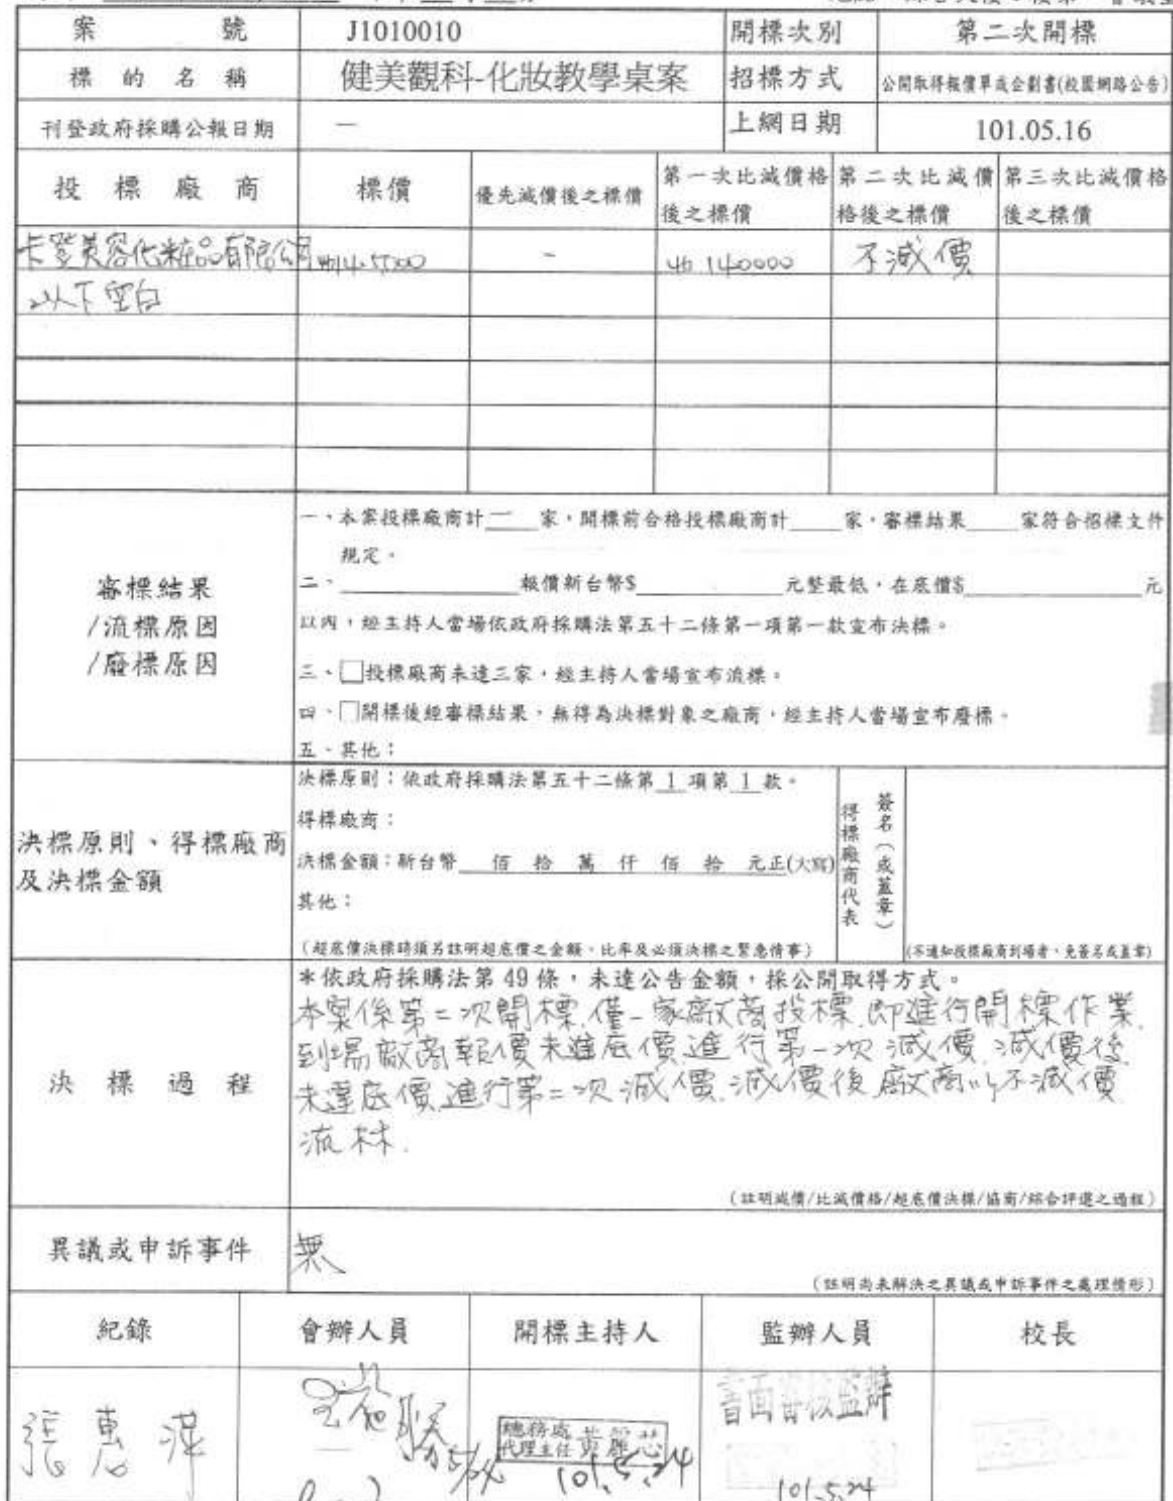 案號 J1010010 開標次別 第二次開標
標的名稱 健美觀科-化妝教學桌案 招標方式 公開取得報價單或企劃書(校園網路公告)
刊登政府採購公報日期 — 上網日期 101.05.16
投標廠商 標價 優先減價後之標價 第一次比減價格後之標價 第二次比減價格後之標價 第三次比減價格後之標價
卡登美容化粧品有限公司 - 140000 不減價
以下空白
審標結果
/流標原因
/廢標原因
一、本案投標廠商計 一 家,開標前合格投標廠商計 家,審標結果 家符合招標文件
規定。
二、 報價新台幣$ 元整最低,在底價$ 元
以內,經主持人當場依政府採購法第五十二條第一項第一款宣布決標。
三、□投標廠商未達三家,經主持人當場宣布流標。
四、□開標後經審標結果,無得為決標對象之廠商,經主持人當場宣布廢標。
五、其他:
決標原則、得標廠商
及決標金額
決標原則:依政府採購法第五十二條第 1 項第 1 款。
得標廠商:
決標金額:新台幣 佰 拾 萬 仟 佰 拾 元正(大寫)
其他:
(超底價決標時須另註明超底價之金額、比率及必須決標之緊急情事)
得標廠商代表
簽名(或蓋章)
(不通知投標廠商到場者,免簽名或蓋章)
決標過程
*依政府採購法第 49 條,未達公告金額,採公開取得方式。
本案係第二次開標,僅一家廠商投標,即進行開標作業,
到場廠商報價未進底價,進行第一次減價,減價後
未達底價,進行第二次減價,減價後,廠商以不減價
流标.
(註明減價/比減價格/超底價決標/協商/綜合評選之過程)
異議或申訴事件 無
(註明尚未解決之異議或申訴事件之處理情形)
紀錄 會辦人員 開標主持人 監辦人員 校長
張惠萍
總務處
代理主任
101.5.24
書面審核監辦
101.5.24